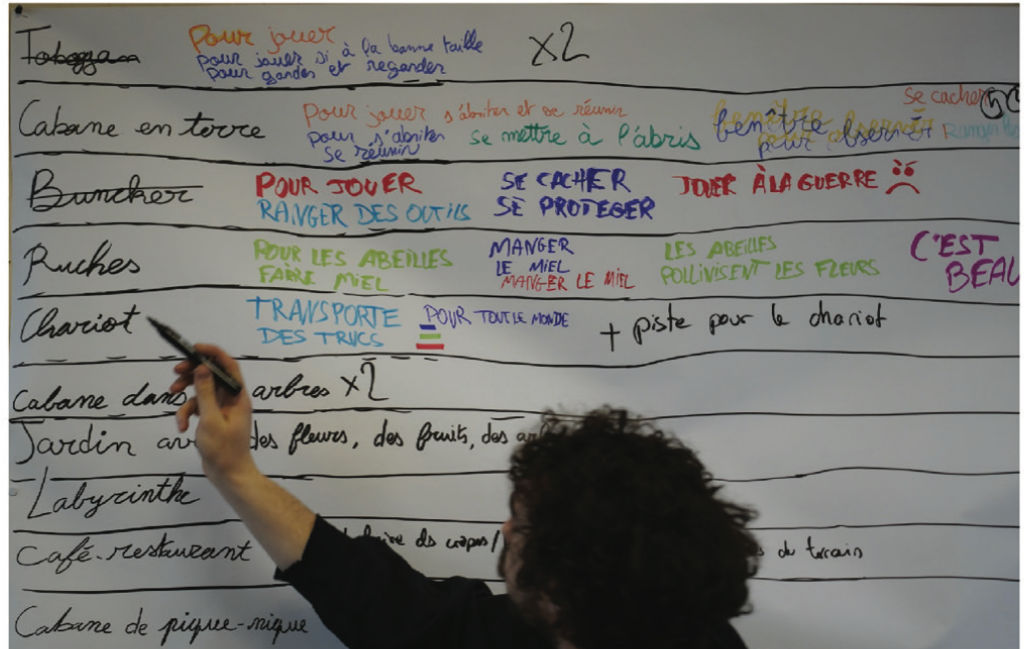 Toboggan
Pour jouer
pour jouer si à la bonne taille
pour garder et regarder
x2
Cabane en terre
Pour jouer s'abriter et se réunir
pour s'abriter
se réunir
se mettre à l'abris
benêtre
pour observer
se cacher
Buncker
POUR JOUER
RANGER DES OUTILS
SE CACHER
SE PROTEGER
JOUER À LA GUERRE
Ruches
POUR LES ABEILLES
FAIRE MIEL
MANGER
LE MIEL
MANGER LE MIEL
LES ABEILLES
POLLINISENT LES FLEURS
C'EST
BEAU
Chariot
TRANSPORTE
DES TRUCS
POUR TOUT LE MONDE
+ piste pour le chariot
Cabane dans arbres x2
Jardin des fleurs, des fruits, des
Labyrinthe
Café-restaurant
du terrain
Cabane de pique-nique